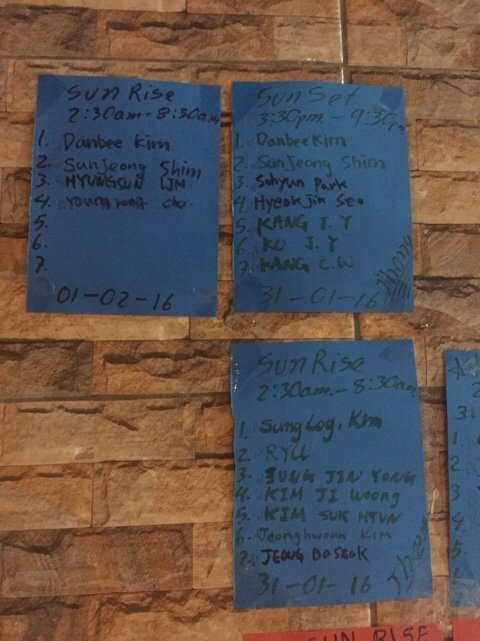 Sun Rise
2:30am-8:30am
1. Danbee Kim
2. SunJeong Shim
3. HYUNGSUN LIM
4. Cho.
5.
6.
7.
01-02-16
Sun Set
3:30pm-9:30pm
1. Danbee Kim
2. SunJeong Shim
3. Sohyun Park
4. Hyeokjin Seo
5. KANG T.Y
6. KO J.Y
7. KANG C.W
31-01-16
Sun Rise
2:30am.-8:30am
1. Sung Log, Kim
2. RYU
3. JUNG JIN YONG
4. KIM JI Woong
5. KIM SUK HYUN
6. Jeonghwoan Kim
7. JEONG BOSEOK
31-01-16
31
SUN RISE